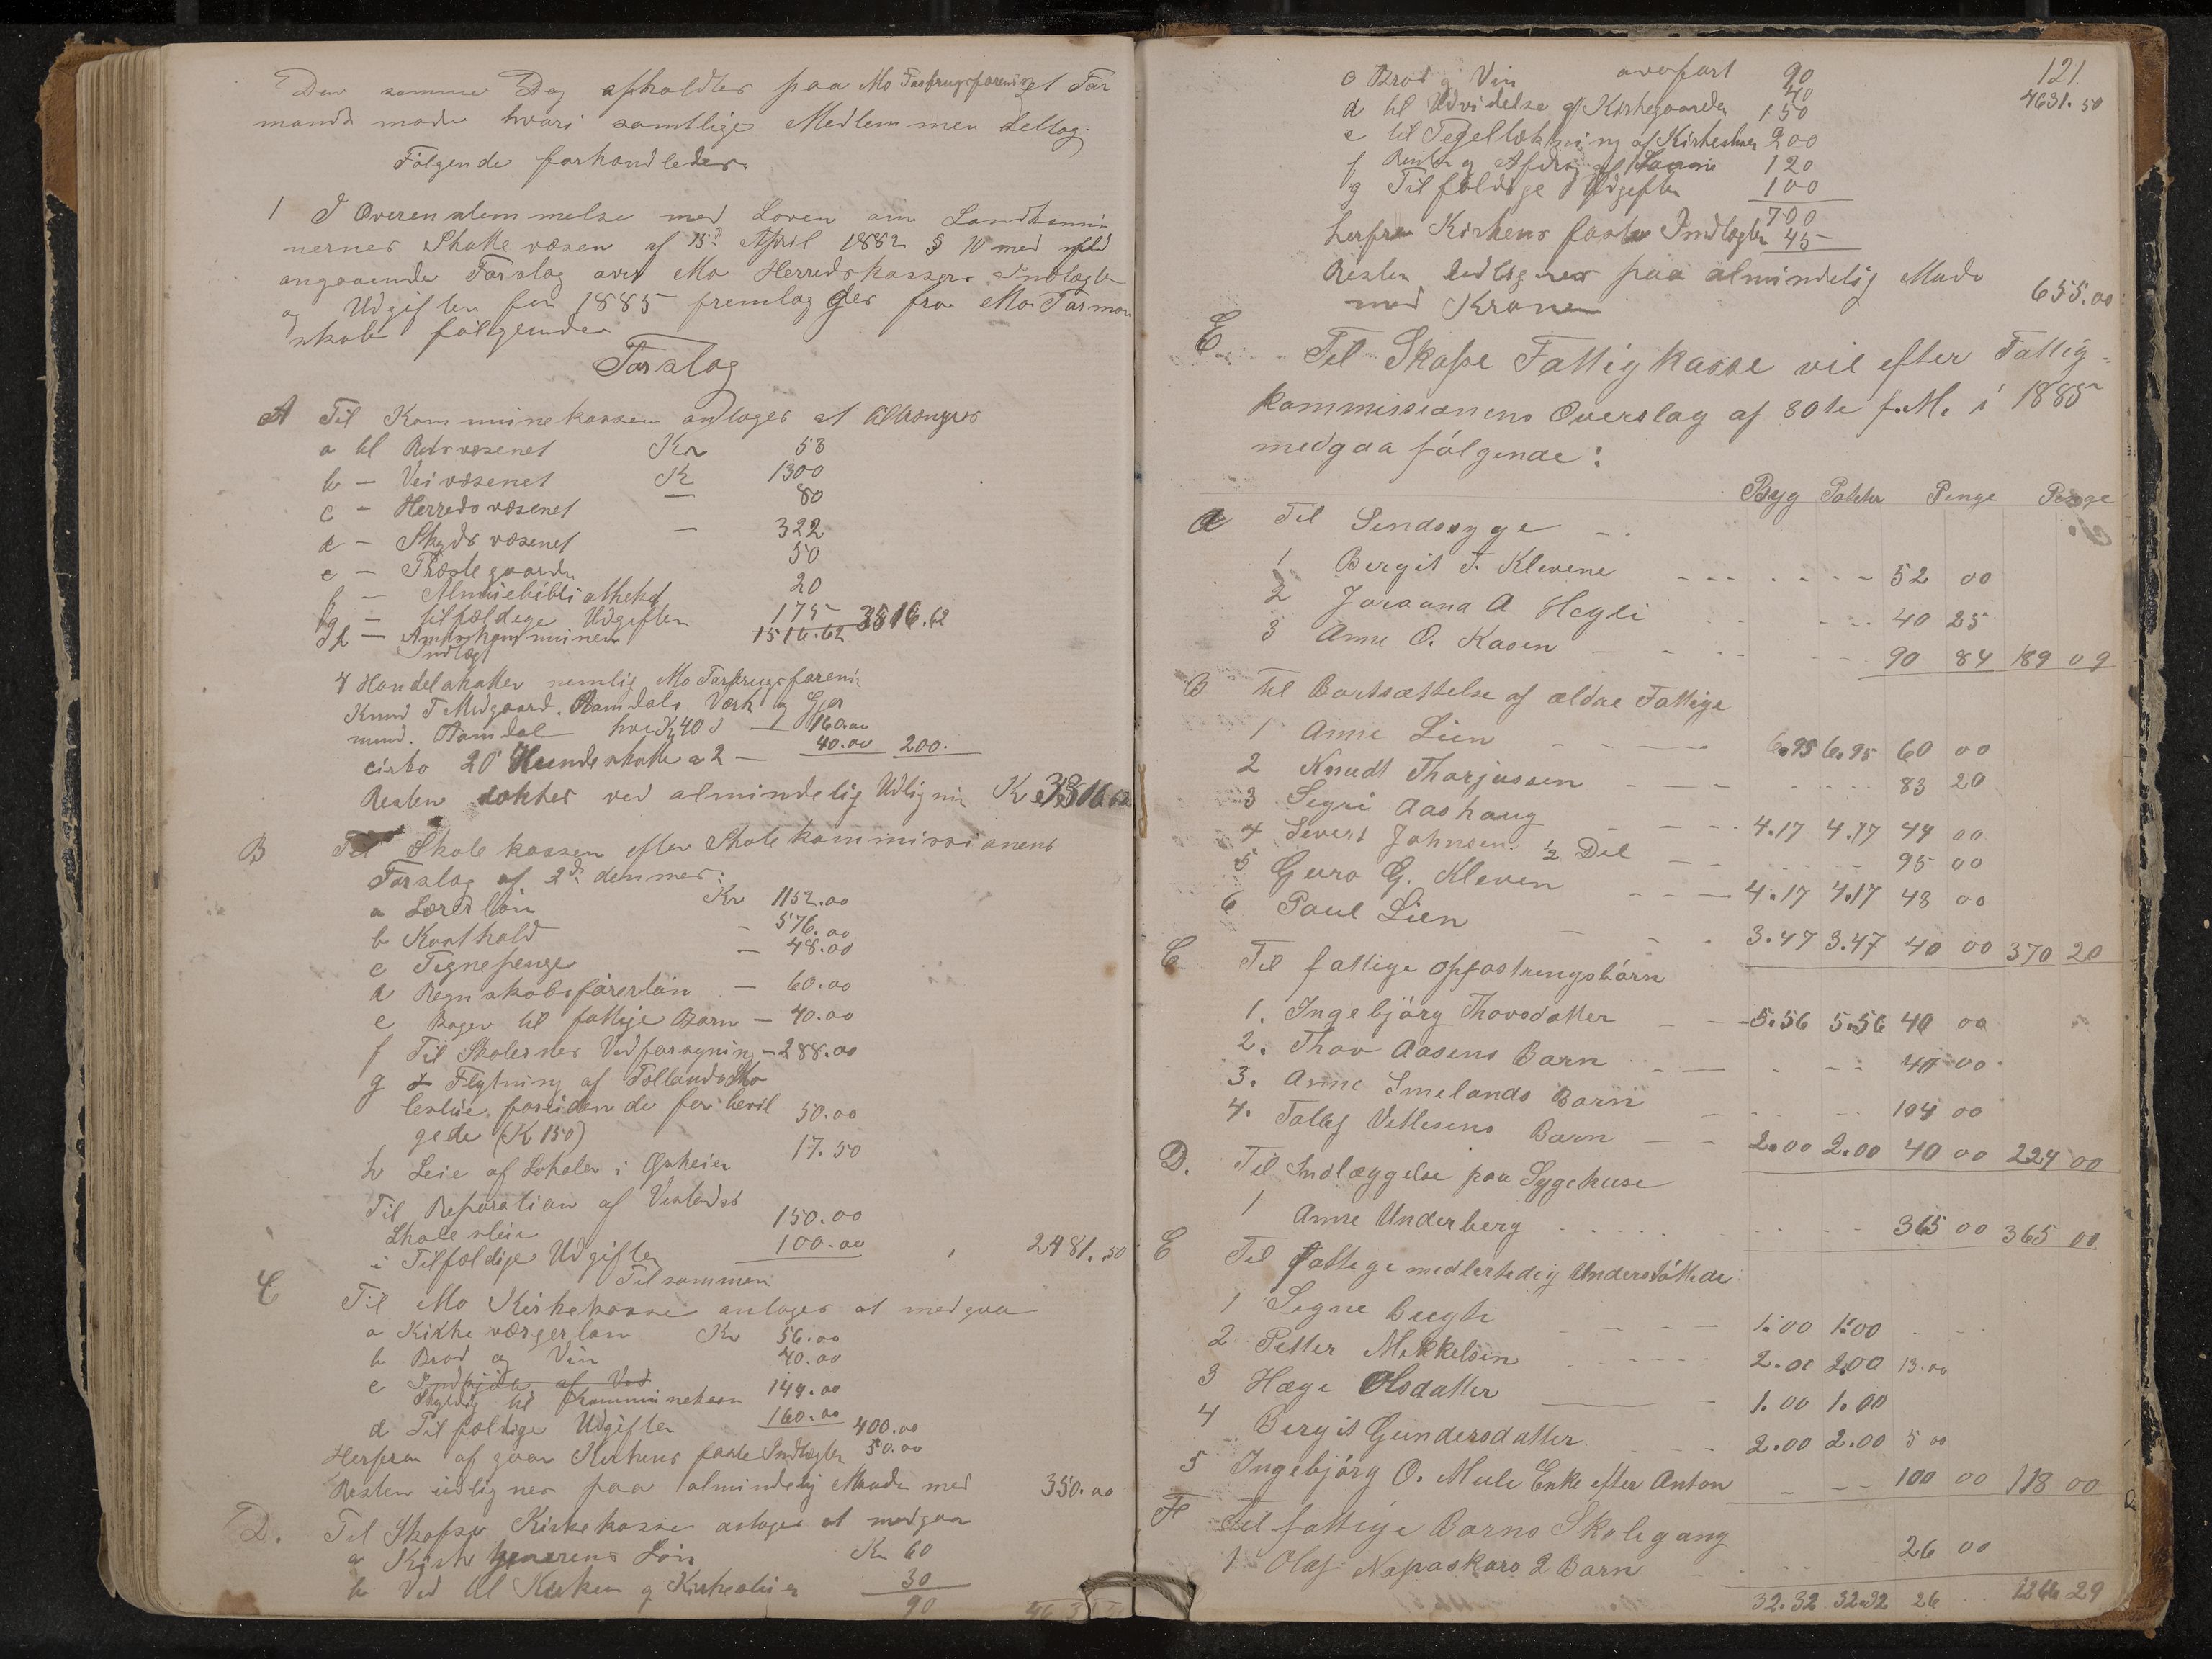 Den samme Dag afholdtes paa Mo Forbrugsforening et For
mandsmøde hvori samtlige Medlemmer deltog.
Følgende forhandledes
1 I Overenstemmelse med Loven om Landkommu
nernes Skattevæsen af 15de April 1882 § 10 med
angaaende Forslag over Mo Herredskasses Indtægter
og Udgifter for 1885 fremlagdes fra Mo Forman
skab følgende
Forslag
A Til Kommunekassen antages at tiltrænges
a til Retsvæsenet Kr 53
b – Veivæsenet Kr 1300
c – Herredsvæsenet — 80
d – Skydsvæsenet — 322
e – Præstegaarde 50
f – Almuebibliotheket 20
g – tilfældige Udgifter 175
h – Amtskommunen 1516.62 3516.62
Indtægt
4 Handelskatter nemlig Mo Forbrugsforeni
Knud T Midgaard. Aamdals Værk og Gjer
mund. Aamdal hver K 40 160.00
cirka 20 Hundeskatte a 2 — 40.00 200.
Resten ved almindelig Udligni K 3316.62
B Til Skolekassen efter Skolekommissionens
Forslag af 2den dennes:
a Lærerløn Kr 1152.00
b Kosthold – 576.00
c Tegnepenge – 48.00
d Regnskabsførerløn – 60.00
e Bøger til fattige Børn – 40.00
f Til Skolernes Vedforsyning – 288.00
g Flytning af Sko
lestue foruden de før bevil
gede (K 150) 50.00
h Leie af Lokaler i 17.50
Til Reparation af
Skolestue 150.00
i Tilfældige Udgifter 100.00
Tilsammen 2481.50
C Til Mo Kirkekasse antages at medgaa
a Kirkeværgerløn Kr 56.00
b Brød og Vin 40.00
c af Ved
til Kommunekassen 144.00
d Tilfældige Udgifter 160.00 400.00
Herfra afgaar Kirkens faste Indtægter 50.00
Resten udlignes paa almindelig Maade med 350.00
D. Til Skafse Kirkekasse antages at medgaa
a Løn Kr 60
b Ved til Kirken og 30
90
121.
overført 90 4631.50
c Brød og Vin 40
d til Udvidelse af Kirkegaarden 150
e til Tegeltækning af 200
f Renter og Afdrag af Laane 120
g Tilfældige Udgifter 100
700
herfra Kirkens faste Indtægter 45
Resten udlignes paa almindelig Maade
med Kroner 655.00
E. Til Skafse Fattigkasse vil efter Fattig-
kommissionens Overslag af 30te f.M. i 1885
medgaa følgende:
Byg Poteter Penge Penge
a Til Sindssyge
1 Bergit T. Klevene 52 00
2 Joraana A Hegli 40 25
3 Anne O. Kasen 90 84 189 09
B til Bortsættelse af ældre Fattige
1 Anne Lien 6.95 6.95 60 00
2 Knudt Thorjussen 83 20
3 Signi Aashaug 4.17 4.17 44 00
4 Sivert Johnsen ½ Del 95 00
5 Guro G. Kleven 4.17 4.17 48 00
6 Paul Lien 3.47 3.47 40 00 370 20
C Til fattige opfostringsbørn
1. Ingebjørg Thovsdatter 5.56 5.56 40 00
2. Thov Aasens Barn 40 00
3. Anne Smelands Barn 104 00
4. Tallef Vetlesens Barn 2.00 2.00 40 00 224 00
D. Til Indlæggelse paa Sygehuse
1 Anne Underberg 365 00 365 00
E Til fattige medlertidig Understøttede
1 Signe Bugli 1.00 1.00
2 Petter Mikkelsen 2.00 2.00 13.00
3 Hæge Olsdatter 1.00 1.00
4 Bergit Gundersdatter 2.00 2.00 5 00
5 Ingebjørg O. Mule Enke efter Anton 100 00 118 00
F Til fattige Børns Skolegang
1 Olaf 2 Barn 26 00
32.32 32.32 26 1266 29